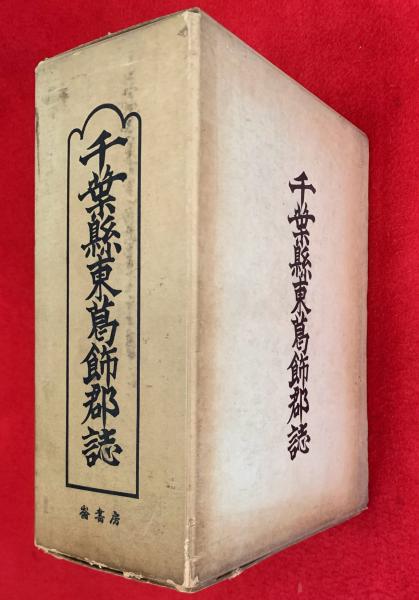 千葉縣東葛飾郡誌
崙書房
千葉縣東葛飾郡誌